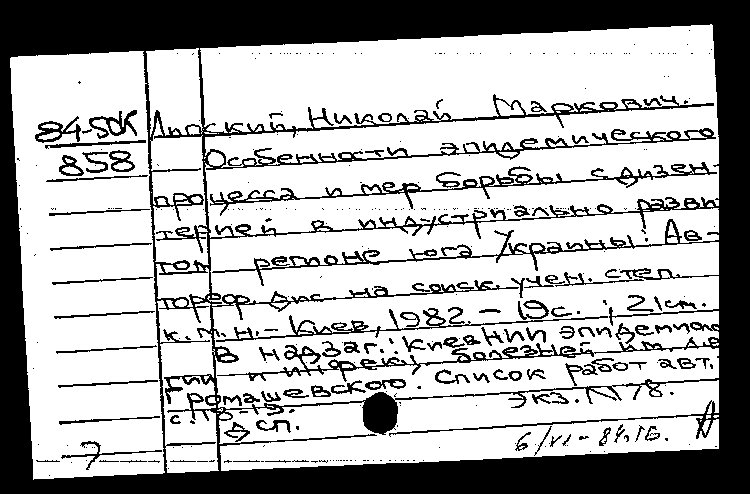 84-5ОК Липский, Николай Маркович.
858 Особенности эпидемического
процесса и мер борьбы с дизен-
терией в индустриально разви
том регионе юга Украины: Ав-
тореф. дис. на соиск. учен. степ.
к.м.н. - Киев, 1982. - 19с. ; 21см.
В надзаг.: Киев НИИ эпидемиоло
гии и инфекц. болезней им. Л.В.
Громашевского. Список работ авт.:
с. 18-19. Экз. N 78.
ДСП.
7 6/VI - 84. ТБ.